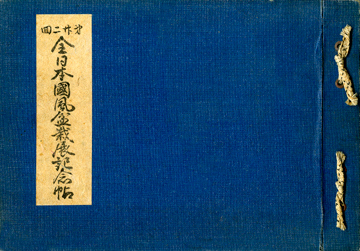 回二廿第
全日本國風盆栽展記念帖